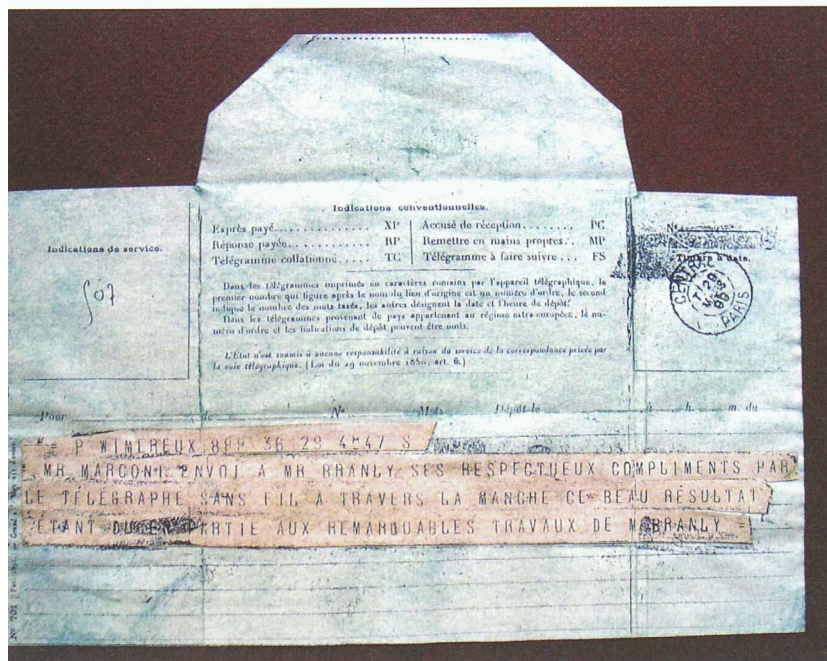 Indications de service.
507
Indications conventionnelles.
Exprès payé............ XP
Réponse payée............ RP
Télégramme collationné.... TC
Accusé de réception........ PC
Remettre en mains propres.. MP
Télégramme à faire suivre... FS
N°
Timbre à date.
CENTRAL
29
99
PARIS
Dans les télégrammes imprimés en caractères romains par l'appareil télégraphique, le
premier nombre qui figure après le nom du lieu d'origine est un numéro d'ordre, le second
indique le nombre des mots taxés, les autres désignent la date et l'heure de dépôt.
Dans les télégrammes provenant de pays appartenant au régime extra-européen, le nu-
méro d'ordre et les indications de dépôt peuvent être omis.
L'État n'est soumis à aucune responsabilité à raison du service de la correspondance privée par
la voie télégraphique. (Loi du 29 novembre 1850, art. 6.)
Pour de N° Mots Dépôt le à h. m. du
= P WIMEREUX 36 29 S
MR MARCONI ENVOI A MR BRANLY SES RESPECTUEUX COMPLIMENTS PAR
LE TÉLÉGRAPHE SANS FIL A TRAVERS LA MANCHE CE BEAU RÉSULTAT
ÉTANT DU EN PARTIE AUX REMARQUABLES TRAVAUX DE M BRANLY =
N° 701